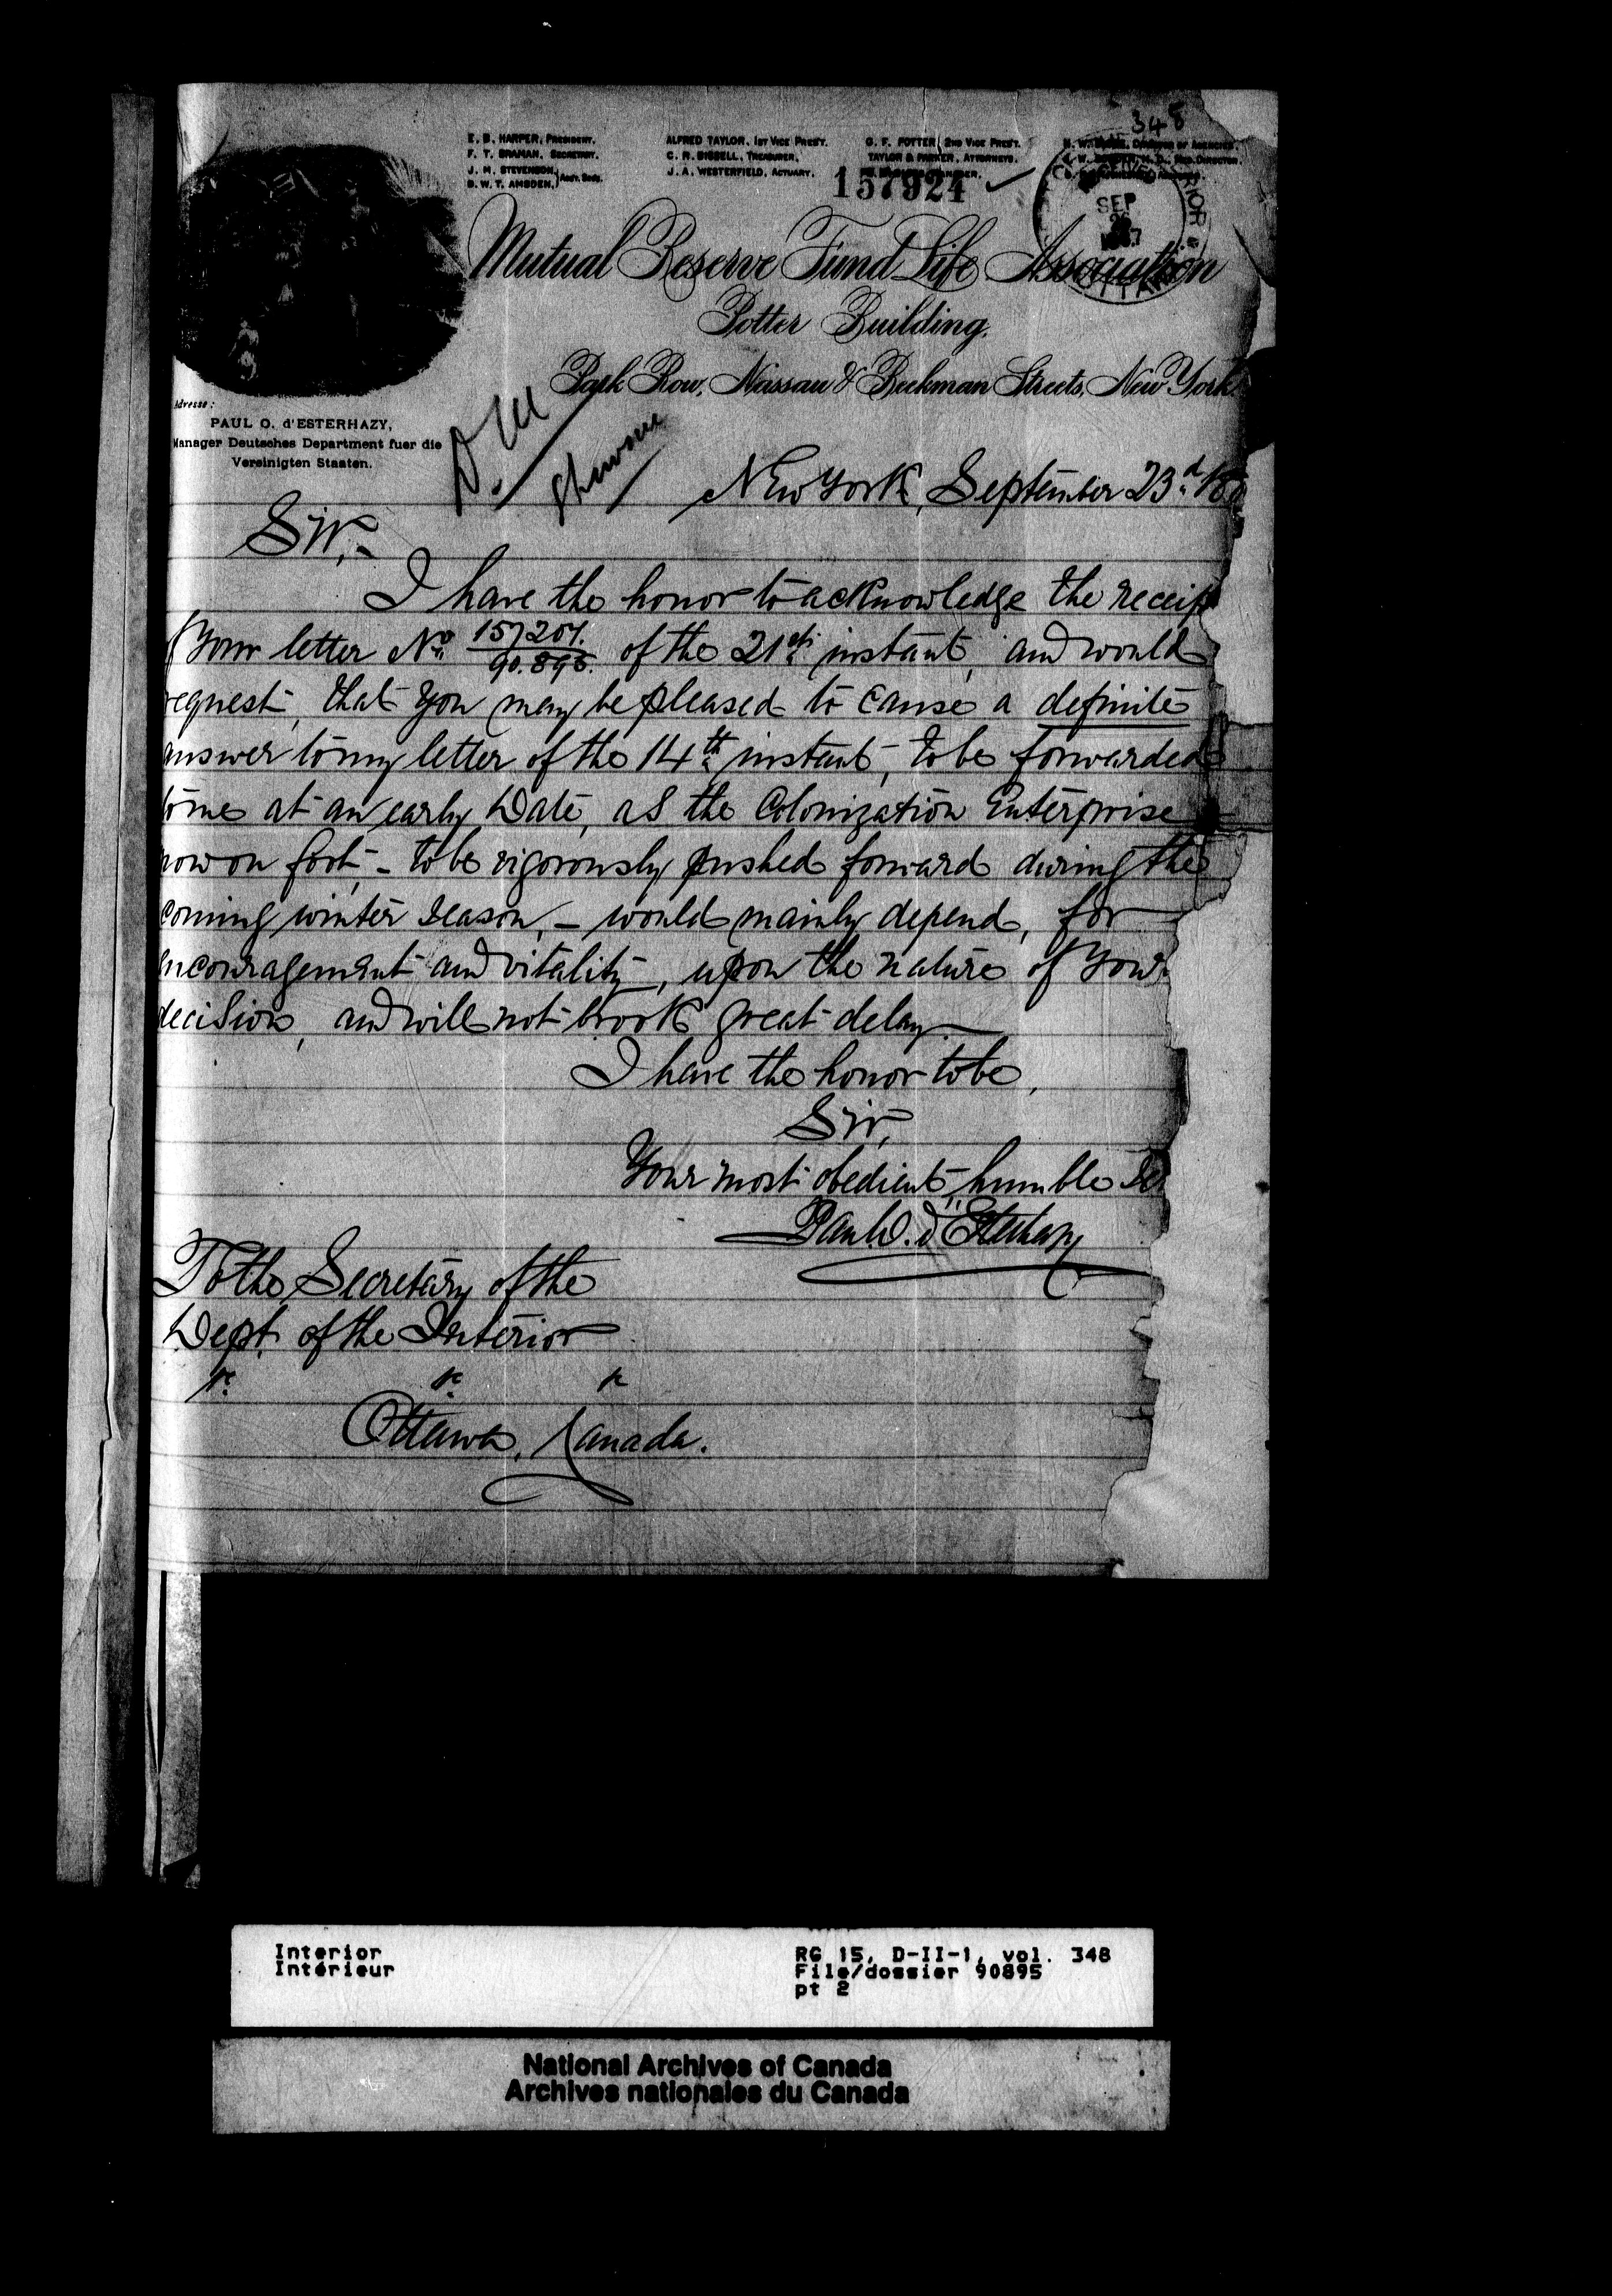 348
E. B. HARPER, PRESIDENT.
F. T. BRAMAN, SECRETARY.
J. M. STEVENSON,
B. W. T. AMSDEN,
Ass't. Secs.
ALFRED TAYLOR, 1ST VICE PRES'T.
C. R. BISSELL, TREASURER,
J. A. WESTERFIELD, ACTUARY.
G. F. POTTER, 2ND VICE PRES'T.
TAYLOR & PARKER, ATTORNEYS.
157924
SEP
26
1887
OTTAWA
Mutual Reserve Fund Life Association
Potter Building,
Park Row, Nassau & Beekman Streets, New York.
Adresse:
PAUL O. d'ESTERHAZY,
Manager Deutsches Department fuer die
Vereinigten Staaten.
New York, September 23d. 188
Sir,-
I have the honor to acknowledge the receip
of Your letter No. 157207. / 90.895. of the 21st. instant, and would
request, that You may be pleased to cause a definite
answer to my letter of the 14th. instant, to be forwarded
to me at an early Date, as the Colonization Enterprise
now on foot, - to be vigorously pushed forward during the
coming winter season, - would mainly depend, for
encouragement and vitality, upon the nature of Your
decision, and will not brook great delay.
I have the honor to be,
Sir,
Your most obedient, humble Se
Paul O. d'Esterhazy
To the Secretary of the
Dept. of the Interior
Ottawa, Canada.
Interior
Intérieur
RG 15, D-II-1, vol. 348
File/dossier 90895
pt 2
National Archives of Canada
Archives nationales du Canada